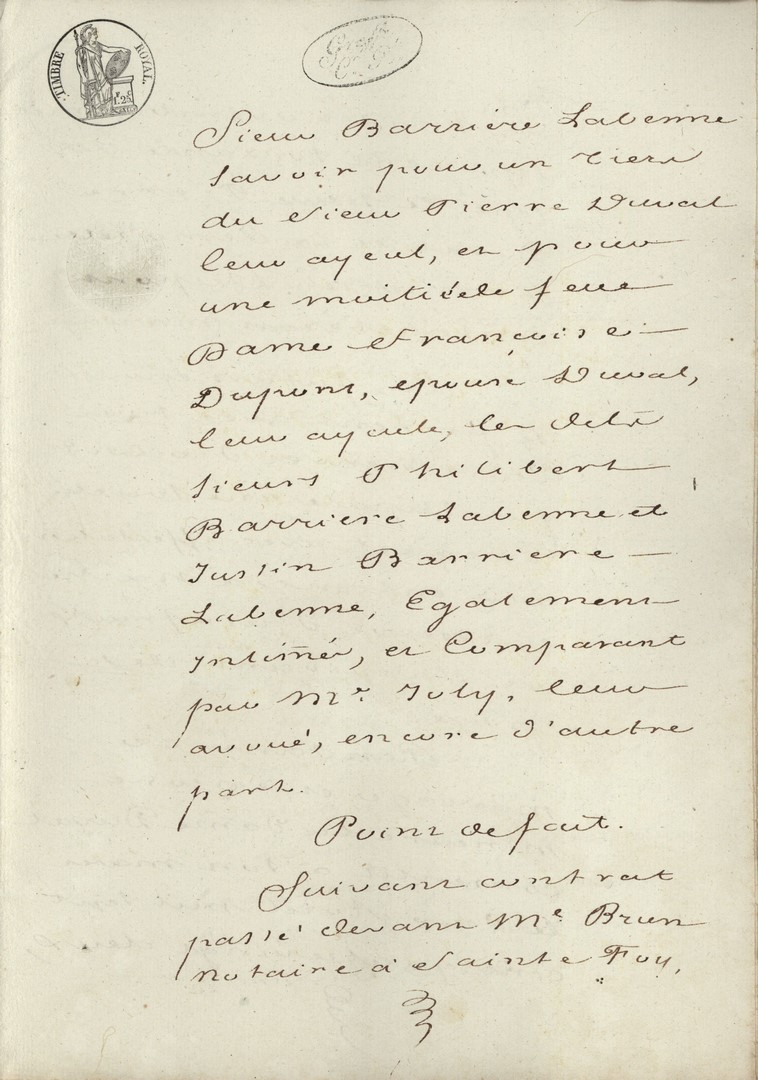 TIMBRE ROYAL.
1F. 25C
Sieur Barriere Labenne
Savoir pour un tiers
du Sieur Pierre Duval
leur ayeul, et pour
une moitié de feue
Dame Françoise
Dupont, epouse Duval,
leur ayeule, les dits
Sieurs Philibert
Barriere Labenne et
Justin Barriere
Labenne, Egalement
Intimés, et Comparant
par Me. Joly, leur
avoué, encore d'autre
part.
Point de fait.
Suivant contrat
passé devant Me. Brun
notaire à Sainte Foy,